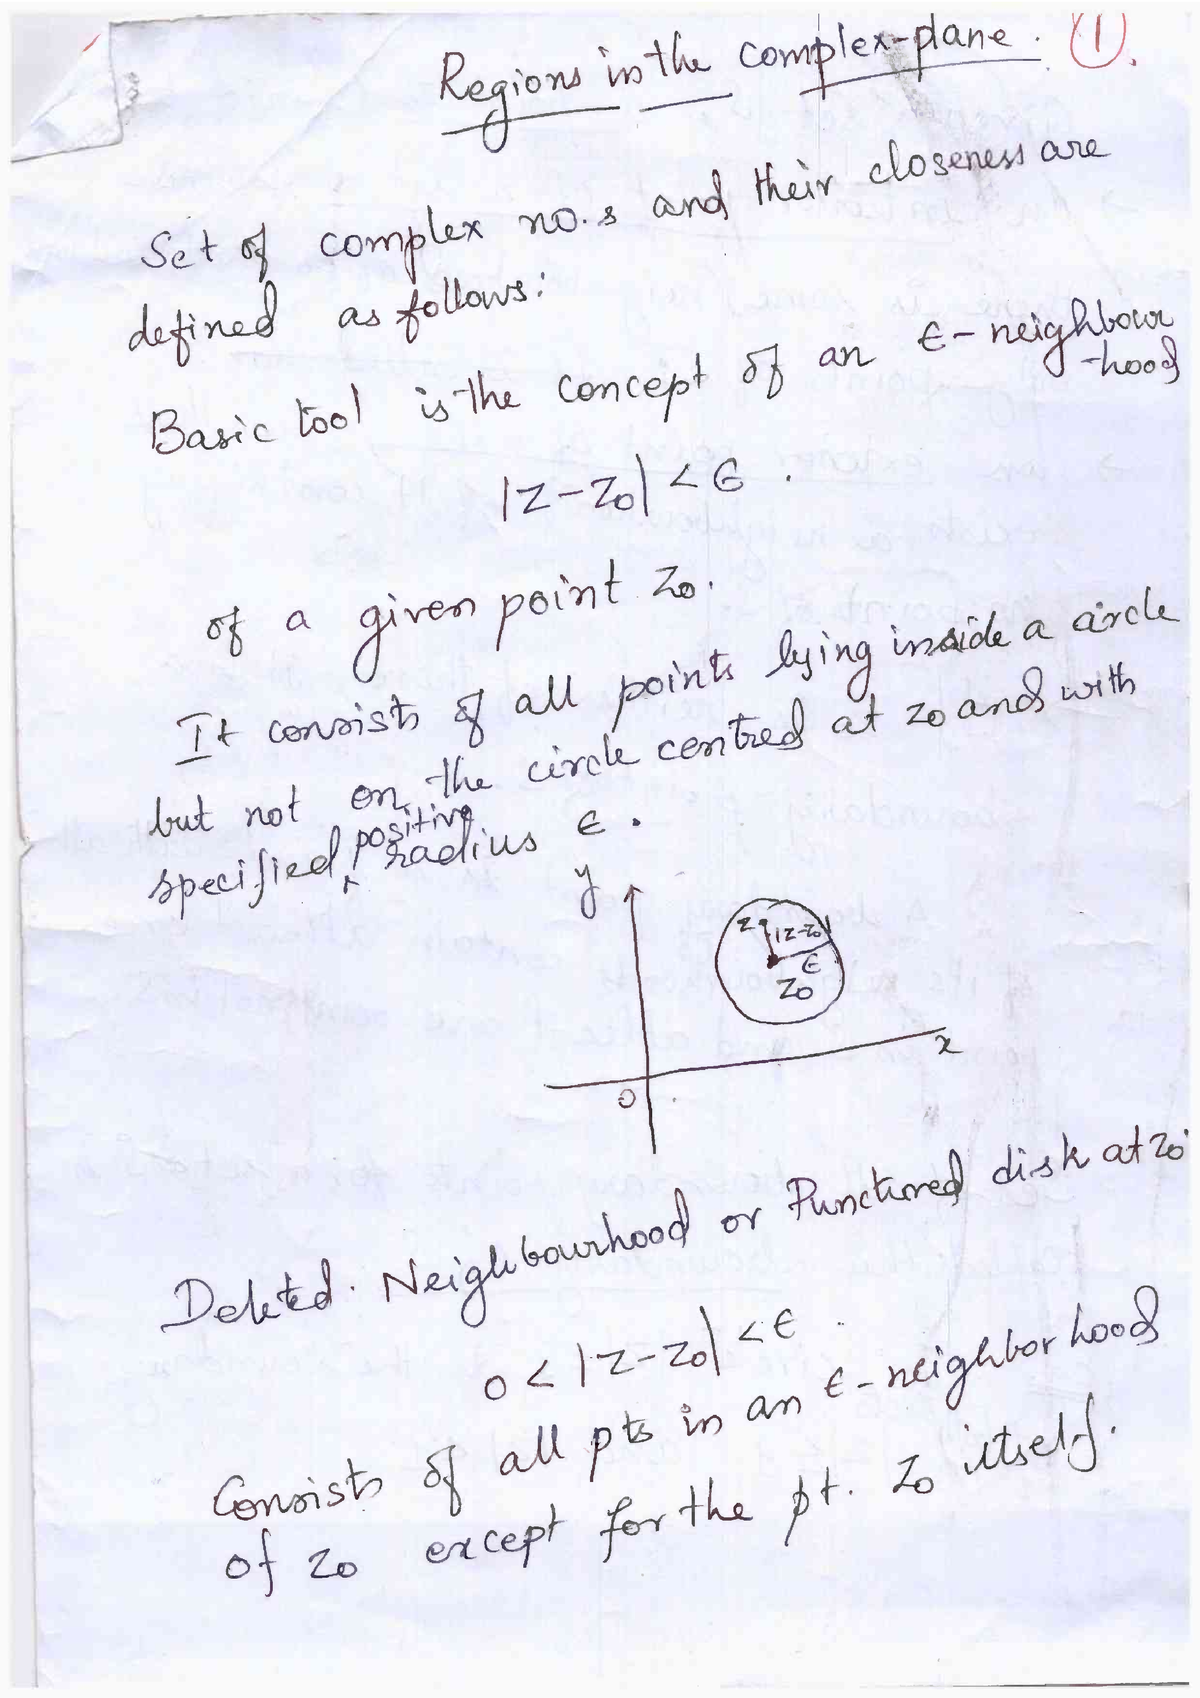 Regions in the complex-plane. 1.
Set of complex no.s and their closeness are
defined as follows:
Basic tool is the concept of an ϵ-neighbour
-hood
|z-z0| < ϵ.
of a given point z0.
It consists of all points lying inside a circle
but not on the circle centred at z0 and with
specified positive radius ϵ.
y
z |z-z0|
ϵ
z0
x
0
Deleted. Neighbourhood or Punctured disk at z0
0 < |z-z0| < ϵ.
Consists of all pts in an ϵ-neighborhood
of z0 except for the pt. z0 itself.